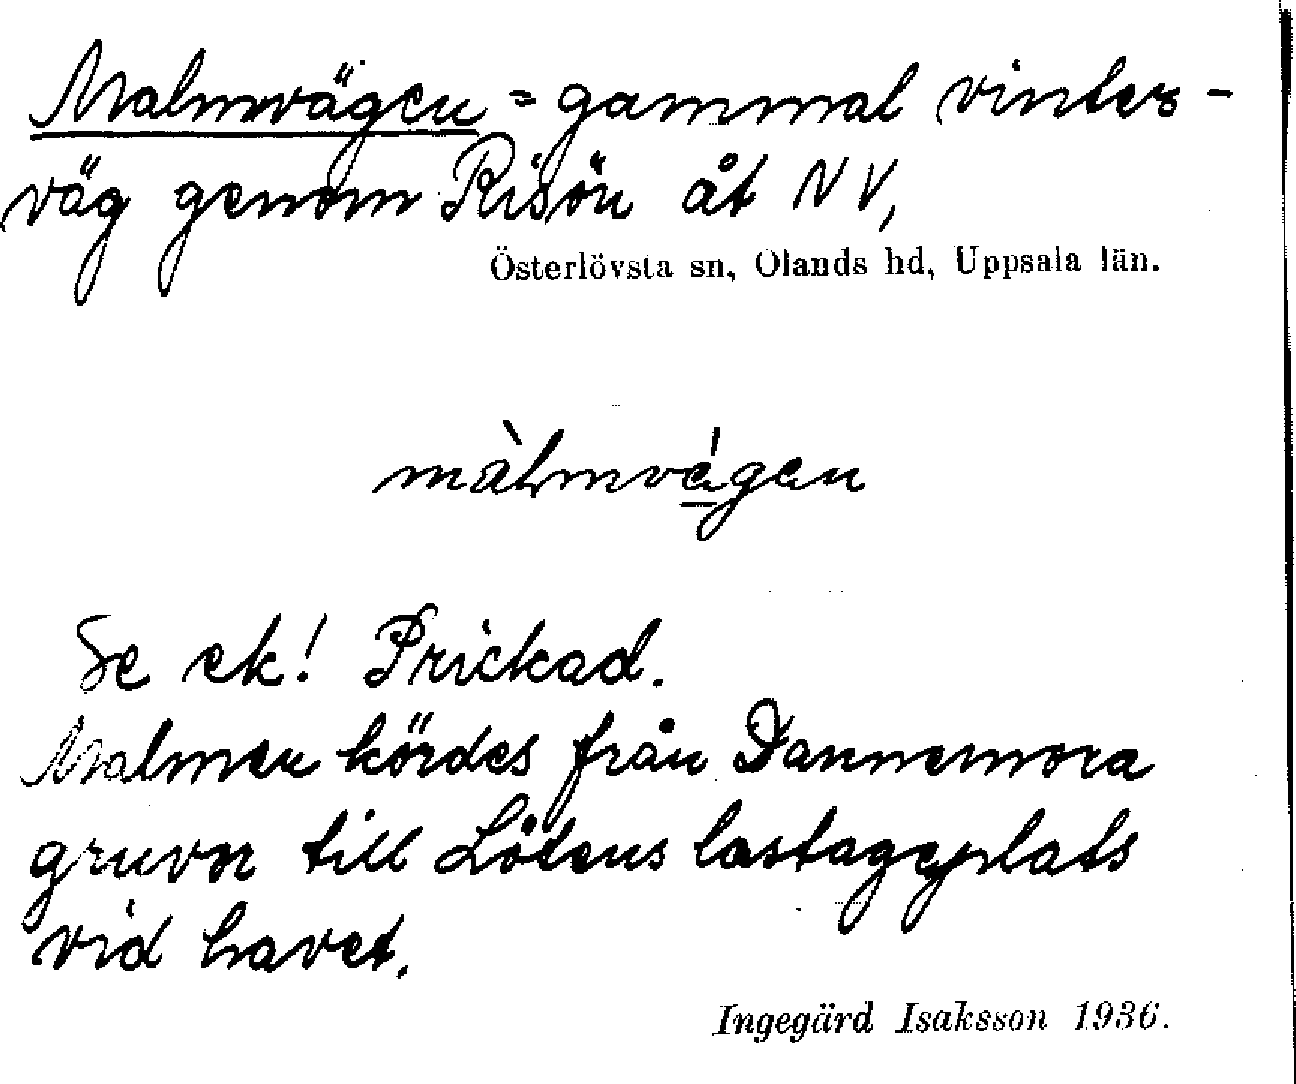 Malmvägen = gammal vinter-
väg genom Risön åt NV,
Österlövsta sn, Olands hd, Uppsala län.
màlmvégen
Se ek! Prickad.
Malmen kördes från Dannemora
gruvor till Lötens lastageplats
vid havet.
Ingegärd Isaksson 1936.